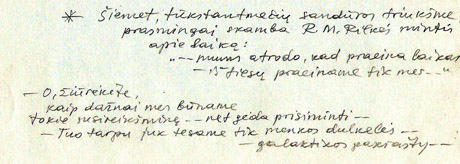 * Šiemet, tūkstantmečių sandūros triukšme,
prasmingai skamba R. M. Rilkės mintis
apie laiką:
"-- mums atrodo, kad praeina laikas
– iš tiesų praeiname tik mes --"
– O, žiūrėkite,
kaip dažnai mes būname
tokie susireikšminę -- net gėda prisiminti --
– Tuo tarpu juk tesame tik menkos dulkelės --
– galaktikos pakrašty --